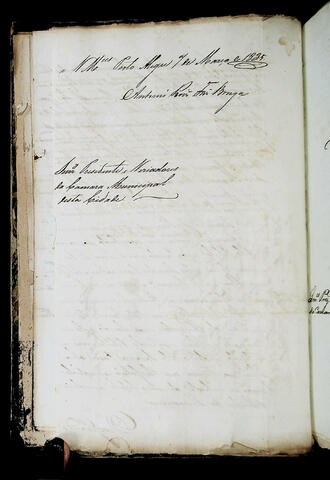 Porto Alegre 7 de Março de 1835
Antonio Roiz Frz Braga
Senr Presidente, e Vereadores
da Camara Municipal
desta Cidade